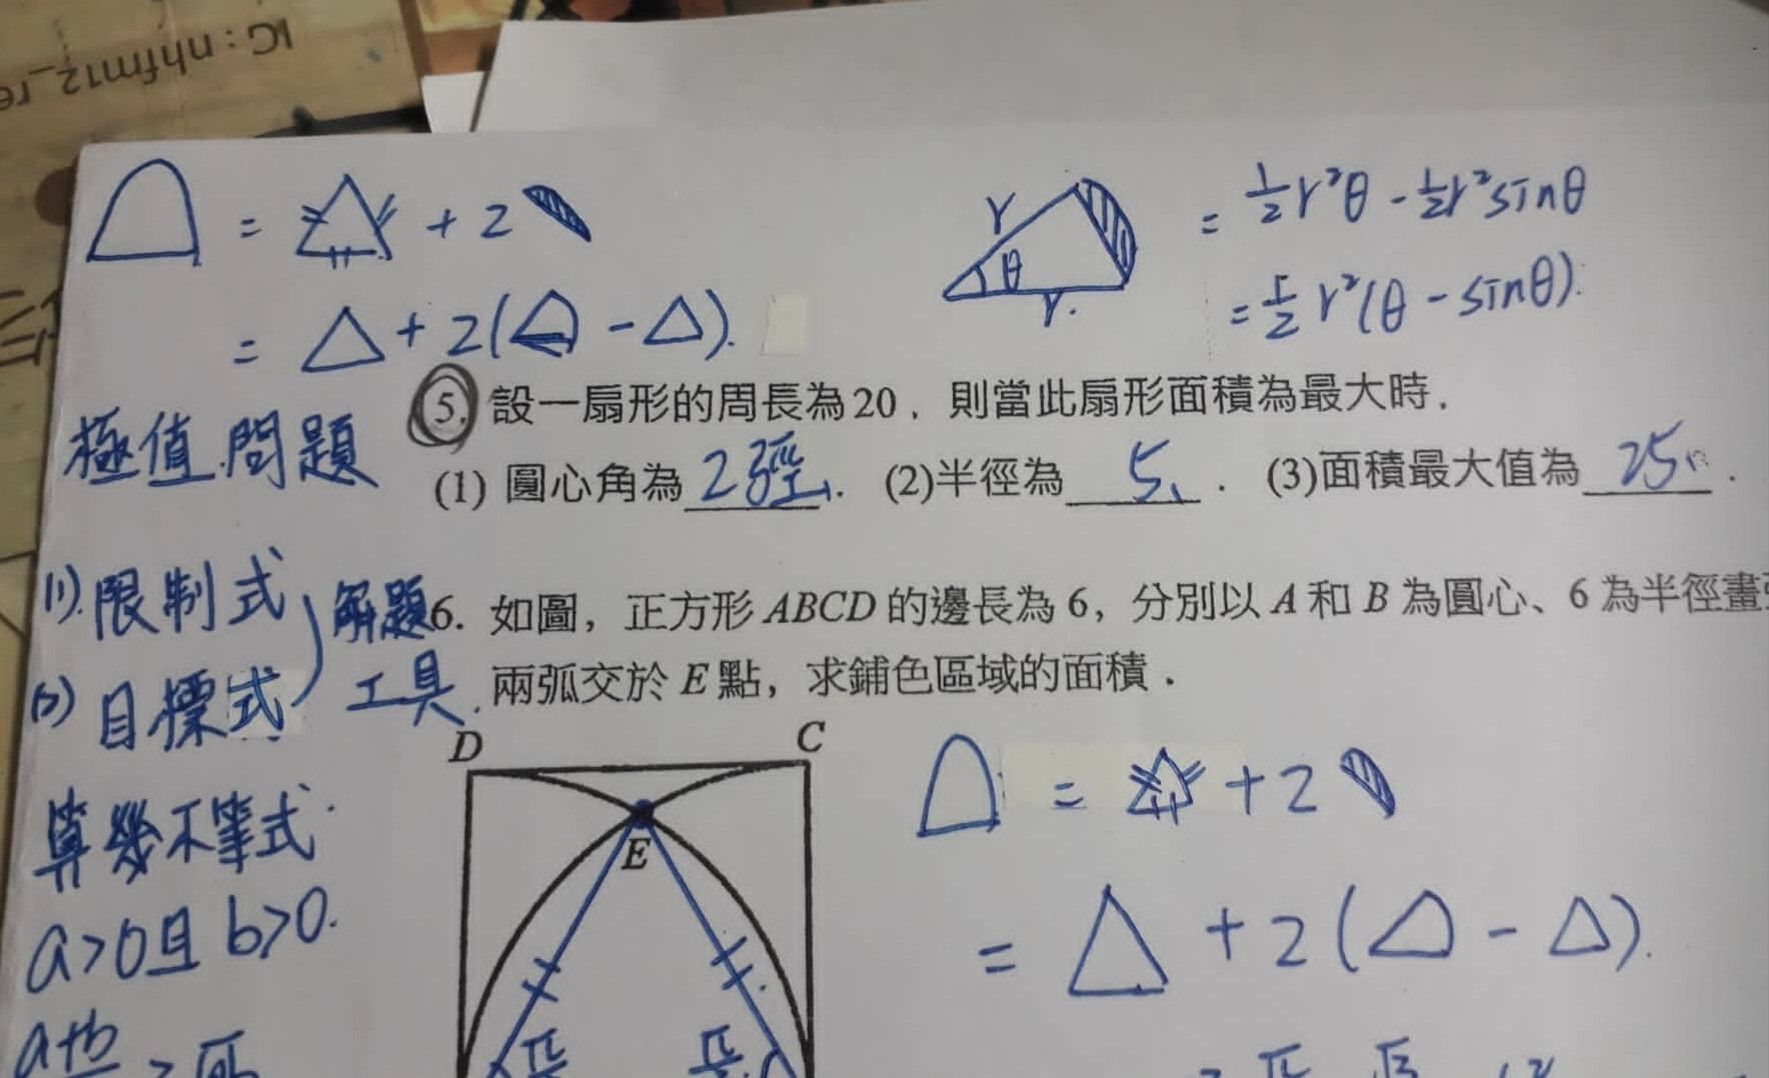 IG:nhfm12_re
= + 2
= △ + 2( - △).
r θ r.
= ½r²θ - ½r²sinθ
= ½r²(θ - sinθ).
極值問題
5. 設一扇形的周長為20，則當此扇形面積為最大時，
(1) 圓心角為 2弳 . (2)半徑為 5 . (3)面積最大值為 25 .
(1).限制式
(2) 目標式
解題
工具.
6. 如圖，正方形 ABCD 的邊長為 6，分別以 A 和 B 為圓心、6 為半徑畫
兩弧交於 E 點，求鋪色區域的面積．
D C
E
= + 2
= △ + 2(△ - △).
算幾不等式.
a>0且 b>0.
a+b